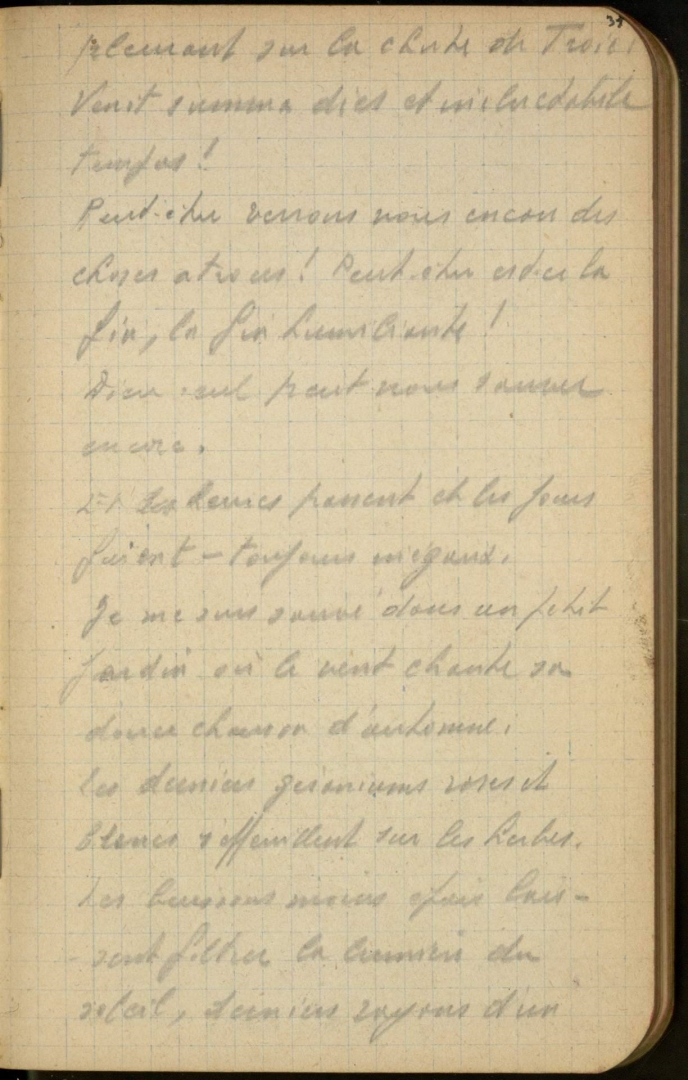 35
pleurant sur la chute de Troie :
Venit summa dies et ineluctabile
tempus !
Peut-être verrons nous encore des
choses atroces ! Peut-être est-ce la
fin, la fin humiliante !
Dieu seul peut nous sauver
encore.
Et les heures passent et les jours
fuient — toujours inégaux.
Je me suis sauvé dans un petit
jardin où le vent chante sa
douce chanson d'automne.
Les derniers géraniums roses et
blancs s'effeuillent sur les herbes.
Les buissons moins épais lais-
-sent filtrer la lumière du
soleil, derniers rayons d'un